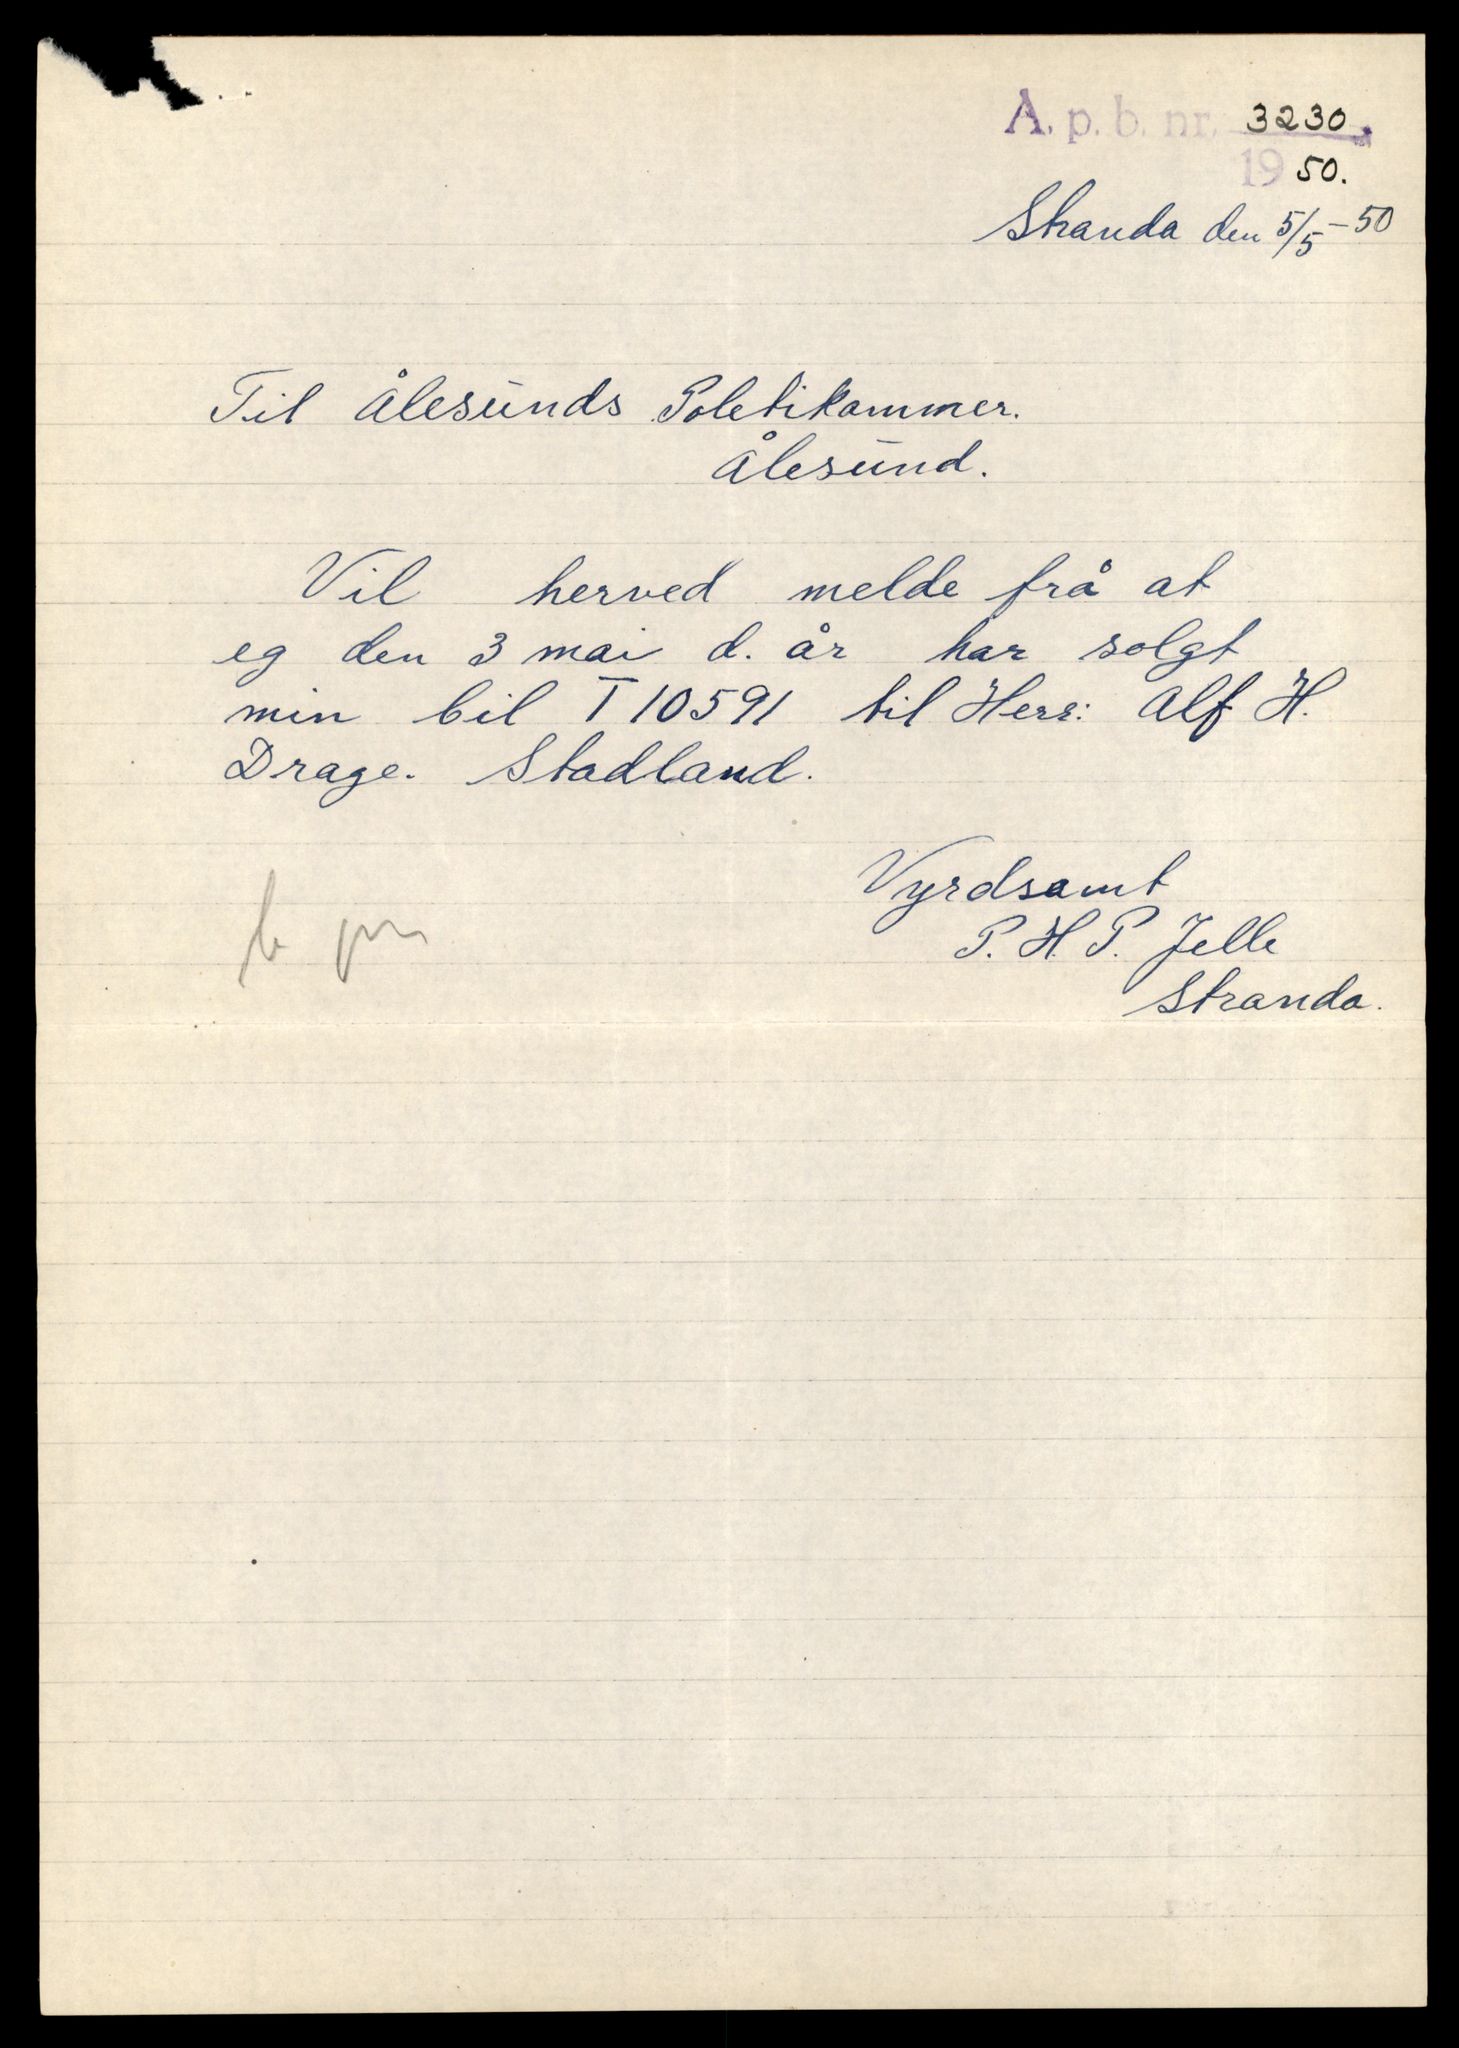 A. p. b. nr. 3230
1950.
Stranda den 5/5-50
Til Ålesunds Poletikammer.
Ålesund.
Vil herved melde frå at
eg den 3 mai d. år har solgt
min bil T 10591 til Herr: Alf H.
Drage. Stadland.
Vyrdsamt
P. H. P. Jelle
Stranda.